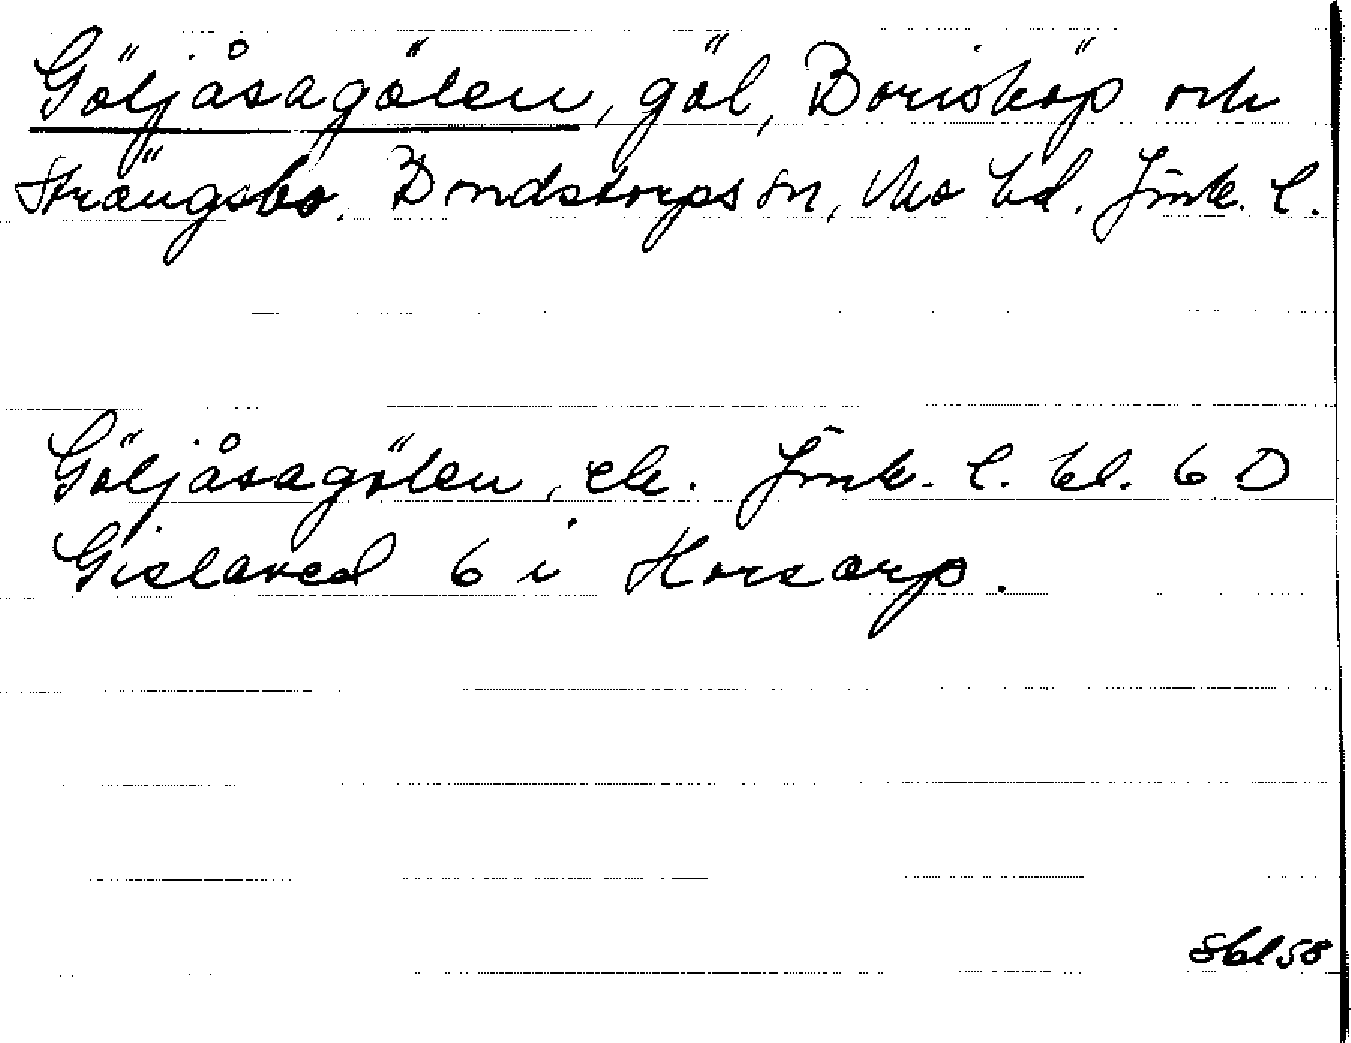 Göljåsagölen, göl, Borisköp och
Strängsbo. Bondstorps sn, Mo hd. Jönk. l.
Göljåsagölen, ek. Jönk. l. bl. 6 D
Gislaved 6 i Horsarp.
Sbl 58